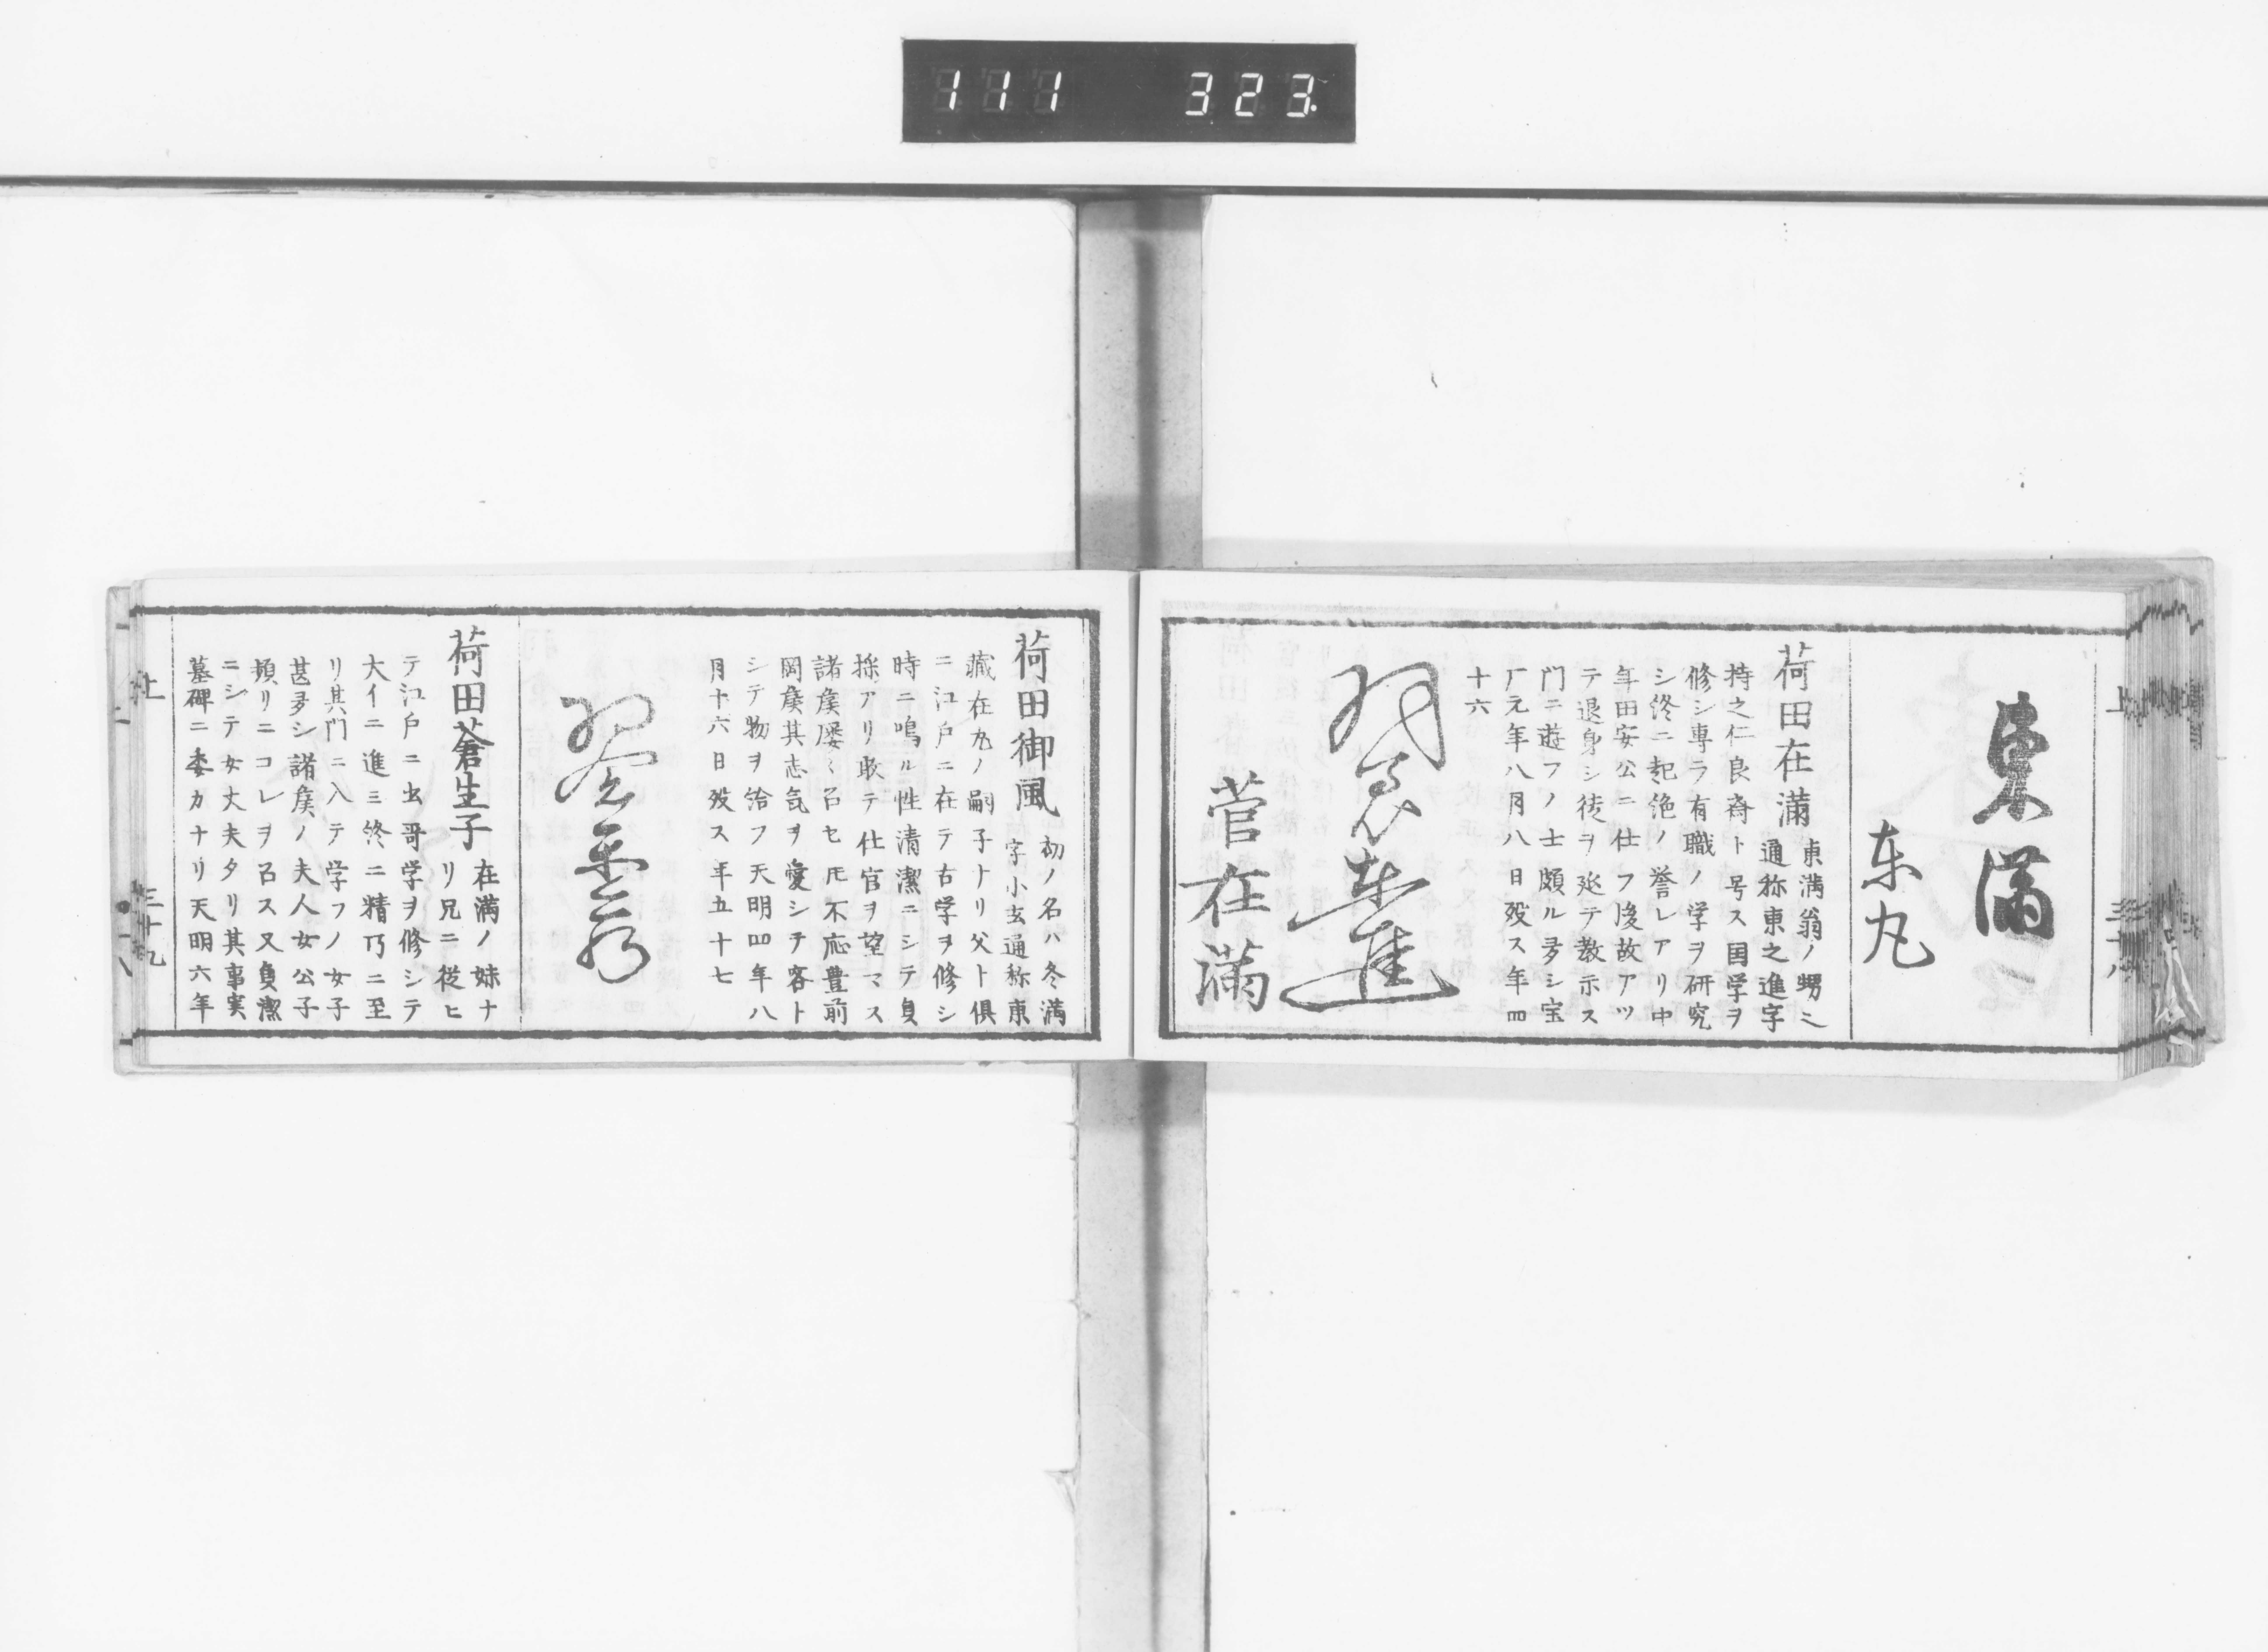 111 323.
東滿
东丸
荷田在滿
東滿翁ノ甥ニ
通称東之進字
持之仁良斎ト号ス国学ヲ
修シ専ラ有職ノ学ヲ研究
シ終ニ起絶ノ誉レアリ中
年田安公ニ仕フ後故アツ
テ退身シ徒ヲ延テ教示ス
門ニ遊フノ士頗ル多シ宝
厂元年八月八日歿ス年四
十六
東進
菅在滿
上 三十八
荷田御風
初ノ名ハ冬満
字小玄通称東
蔵在九ノ嗣子ナリ父ト俱
ニ江戸ニ在テ古学ヲ修シ
時ニ鳴ル性清潔ニシテ貞
操アリ敢テ仕官ヲ望マス
諸矦屡〻召セ𪜈不応豊前
岡矦其志気ヲ愛シテ客ト
シテ物ヲ給フ天明四年八
月十六日歿ス年五十七
荷田蒼生子
在満ノ妹ナ
リ兄ニ従ヒ
テ江戸ニ出哥学ヲ修シテ
大イニ進ミ終ニ精巧ニ至
リ其門ニ入テ学フノ女子
甚多シ諸矦ノ夫人女公子
頻リニコレヲ召ス又貞潔
ニシテ女丈夫タリ其事実
墓碑ニ委カナリ天明六年
上 三十九